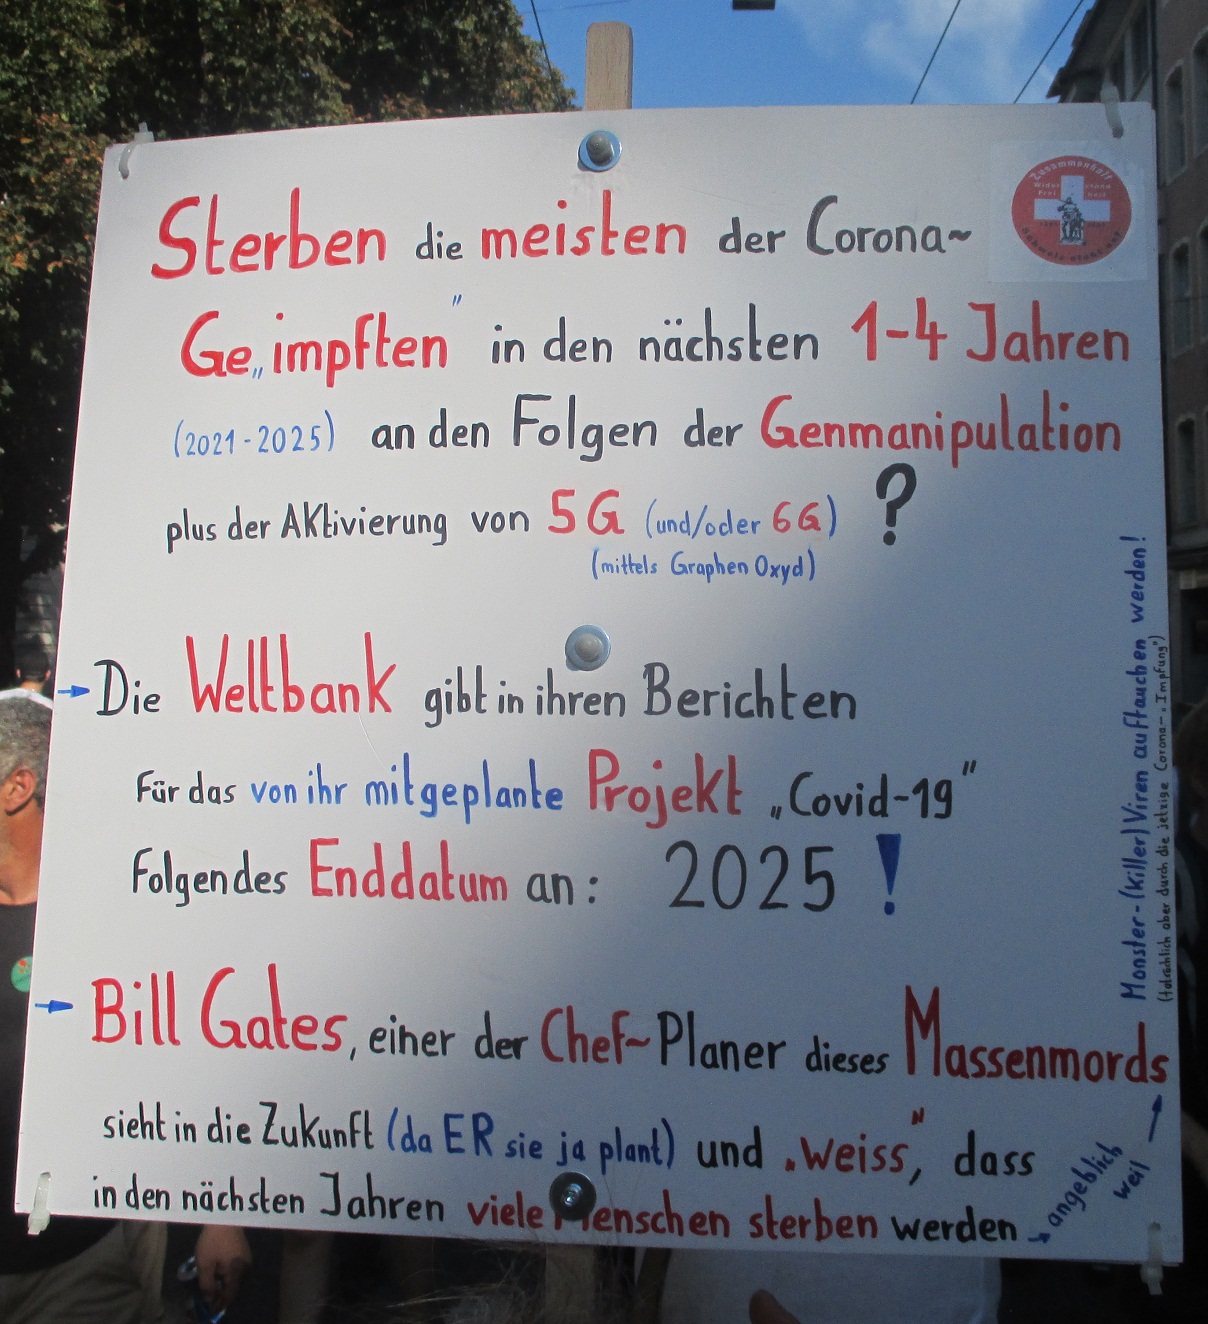 Sterben die meisten der Corona~
Ge„impften" in den nächsten 1-4 Jahren
(2021-2025) an den Folgen der Genmanipulation
plus der Aktivierung von 5G (und/oder 6G) ?
(mittels Graphen Oxyd)
→ Die Weltbank gibt in ihren Berichten
für das von ihr mitgeplante Projekt „Covid-19"
folgendes Enddatum an: 2025 !
→ Bill Gates, einer der Chef~Planer dieses Massenmords
sieht in die Zukunft (da ER sie ja plant) und „weiss", dass
in den nächsten Jahren viele Menschen sterben werden →
angeblich
weil →
Monster-(Killer)Viren auftauchen werden!
(tatsächlich aber durch die jetzige Corona-„Impfung")
Zusammenhalt
Wider stand
Frei heit